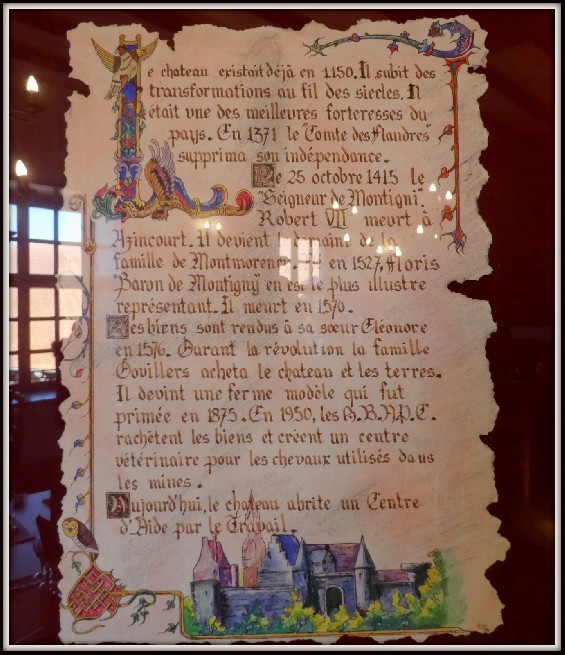 Le chateau existait déjà en 1150. Il subit des
transformations au fil des siecles. Il
était une des meilleures forteresses du
pays. En 1371 le "Comte des Flandres"
supprima son indépendance.
Le 25 octobre 1415 le
"Seigneur de Montigni"
Robert VII meurt à
Azincourt. Il devient le domaine de la
famille de Montmorency en 1527, Floris
"Baron de Montigny" en est le plus illustre
représentant. Il meurt en 1570.
Les biens sont rendus à sa sœur Eléonore
en 1576. Durant la révolution la famille
Dovillers acheta le chateau et les terres.
Il devint une ferme modèle qui fut
primée en 1875. En 1950, les H.B.N.P.C.
rachètent les biens et créent un centre
vétérinaire pour les chevaux utilisés dans
les mines.
Aujourd'hui, le chateau abrite un Centre
d'Aide par le Travail.